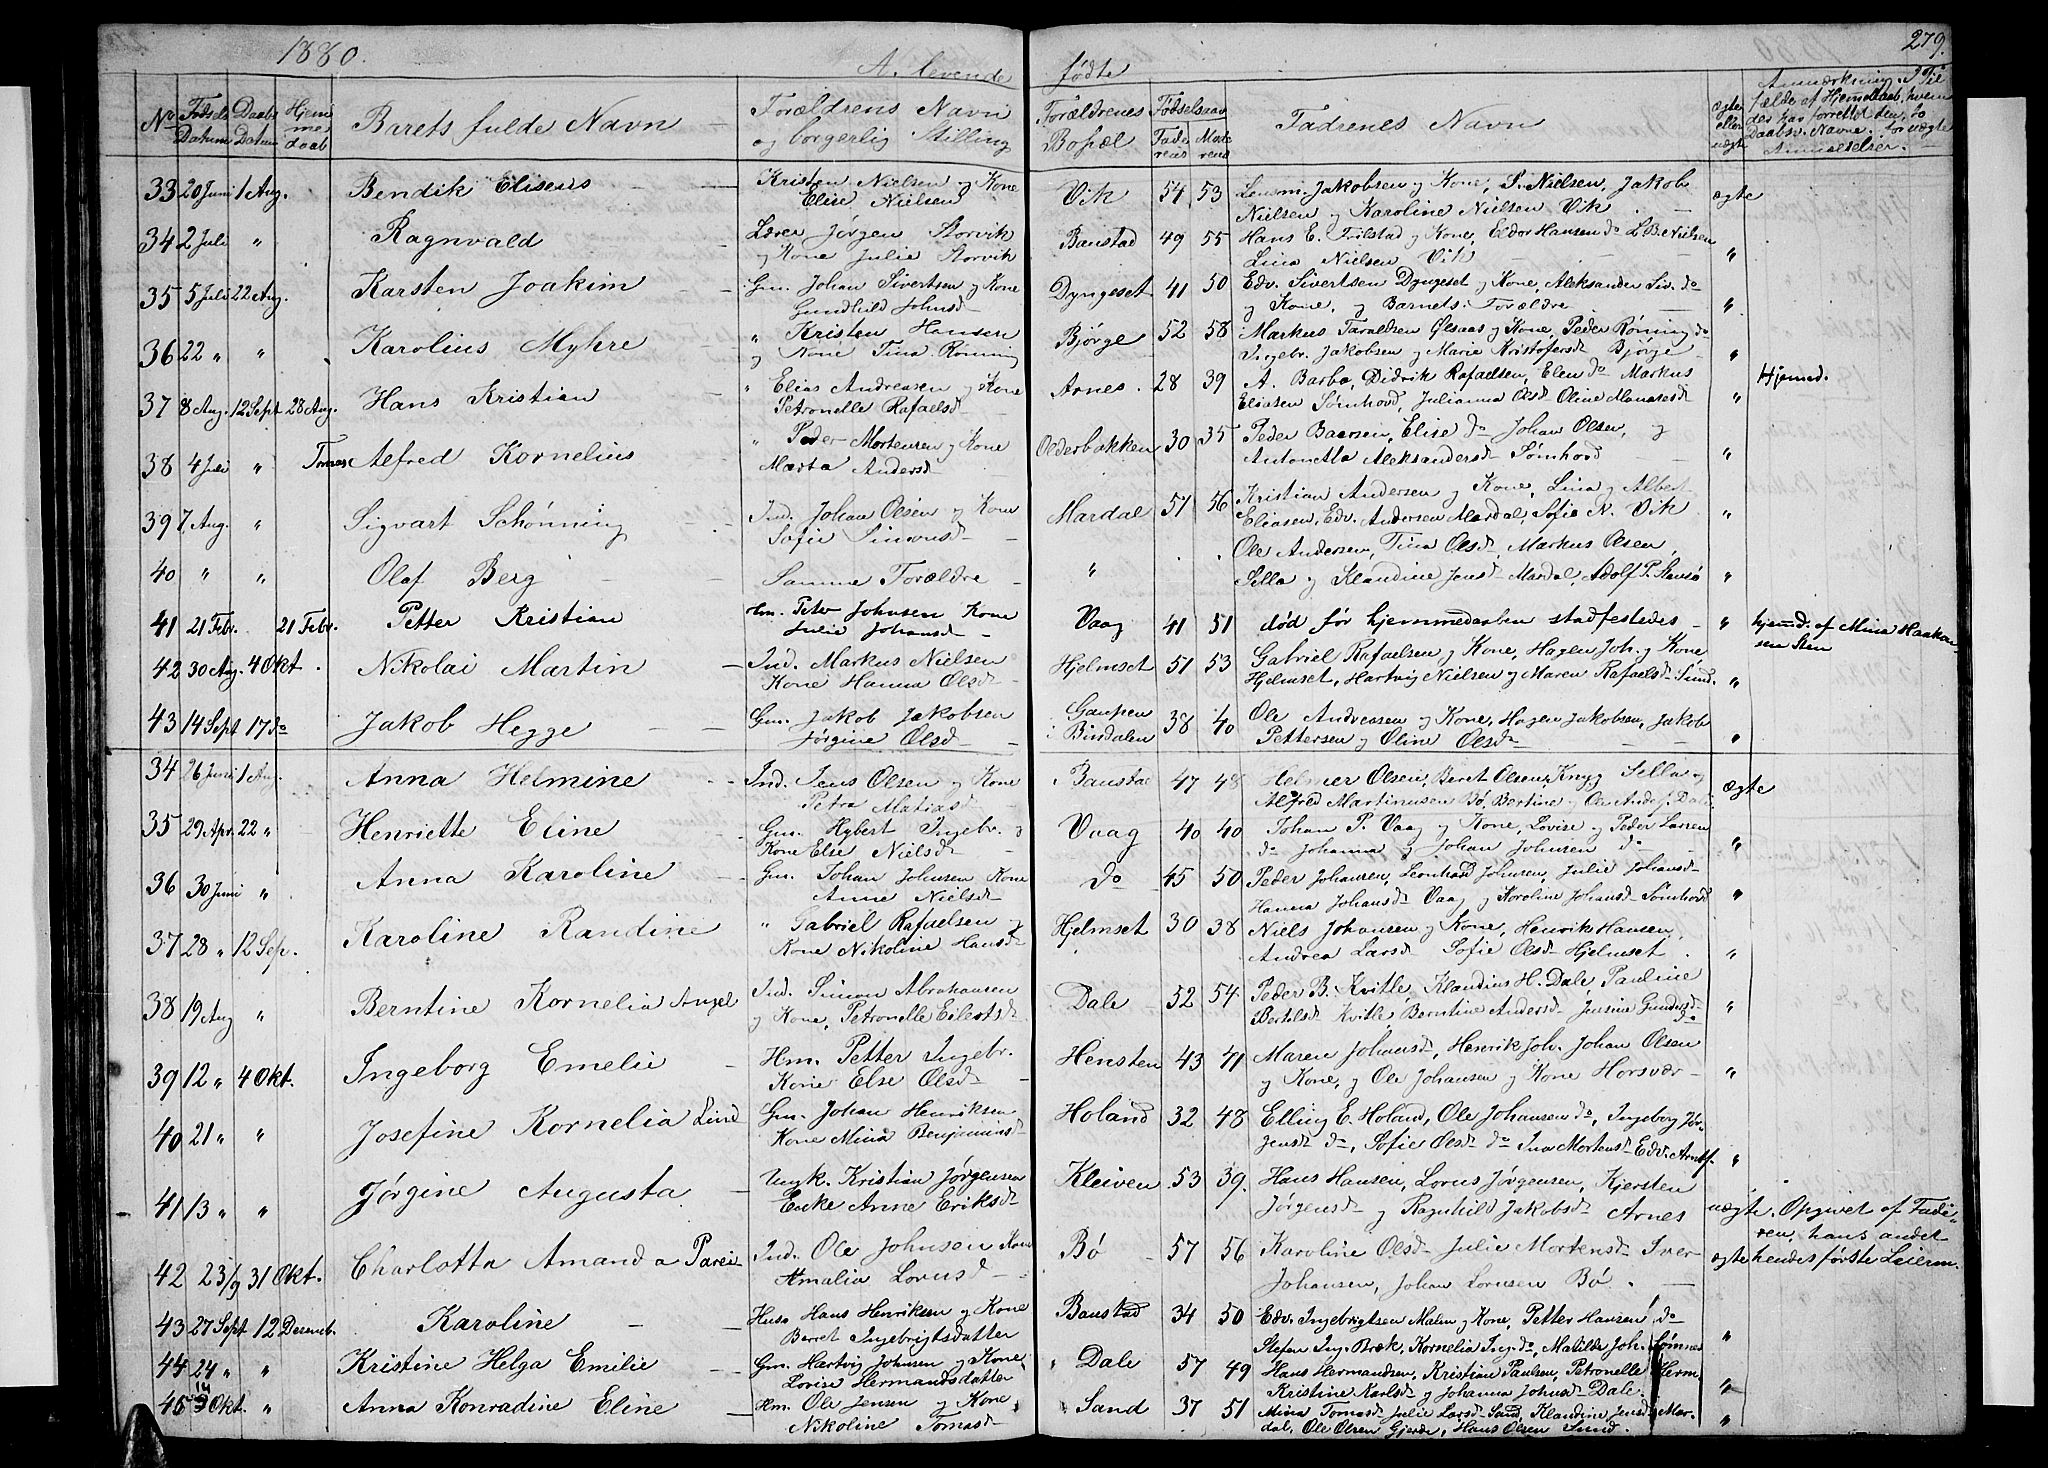 1880.
A. Levende fødte
279.
No Fødsels Datum Daabs Datum Hjemmedaab Barets fulde Navn Forældrens Navn og borgerlig Stilling Forældrenes Bopæl Fødselsaar Faderens Moderens Fadrenes Navn ægte eller uægte Anmærkning. I Tilfælde af Hjemmedaab, hvem der har forrettet den,
33 20 Juni 1 Aug. Bendik Eliseus Kristen Nielsen og Kone Vik 54 53 Lensm. Jakobsen og Kone, P. Nielsen, Jakob ægte
Elise Nielsen Nielsen og Karoline Nielsen Vik
34 2 Juli " Ragnvald Lærer Jørgen Storvik Baustad 49 55 Hans E. Trilstad og Kone, Eldor Hansen do L.B. Nielsen "
og Kone Julie Storvik Lina Nielsen Vik
35 5 Juli 22 Aug. Karsten Joakim Gm. Johan Sivertsen og Kone Dyngeset 41 50 Edv. Sivertsen Dyngeset og Kone, Aleksander Siv. do "
Gundhild Johnsd og Kone, og Barnets Forældre
36 22 " " Karolius Myhre " Kristen Hansen Bjørge 52 58 Markus Taraldsen Ølsaas og Kone, Peder Rønning do "
og Kone Tina Rønning Ingebr. Jakobsen og Marie Kristofersd Bjørge
37 8 Aug. 12 Sept 28 Aug. Hans Kristian " Elias Andreasen og Kone Arnes. 28 39 A. Barbo, Didrik Rafaelsen, Elen do Markus " Hjemd.
Petronelle Rafaelsd Eliasen Sømhovd, Julianna Olsd Oline Manasesd
38 4 Juli " Alfred Kornelius " Peder Mortensen og Kone Olderbakken 30 35 Peder Baarsen, Elise do Johan Olsen, og "
Marta Andersd Antonetta Aleksandersd Sømhovd
39 7. Aug. " Sigvart Schønning Ind. Johan Olsen og Kone Mardal 51 56 Kristian Andersen og Kone, Lina og Albert "
Sofie Simonsd Eliasen, Edv. Andersen Mardal, Sofie N. Vik
40 " " Olaf Berg Samme Forældre " Ole Andersen, Tina Olsd Markus Olsen, "
Sella og Klaudine Jensd Mardal, Adolf P.
41 21 Febr. 21 Febr. Petter Kristian Hm. Peter Johnsen Kone Vaag 41 51 død før hjemmedaaben stadfestedes " hjemd. af Mina Haakonsen Sten
Julie Johansd
42 30 Aug. 4 Okt. Nikolai Martin Ind. Markus Nielsen Hjelmset 51 53 Gabriel Rafaelsen og Kone, Hagen Joh. og Kone "
Kone Hanna Olsd Hjelmset, Hartvig Nielsen og Maren Rafaelsd Sund.
43 14 Sept 17 do Jakob Hegge Gm. Jakob Jakobsen Gaupen Bindalen 38 40 Ole Andreassen og Kone, Hagen Jakobsen, Jakob "
Jørgine Olsd Pettersen og Oline Olsd
34 26 Juni 1 Aug. Anna Helmine Ind. Jens Olsen og Kone Baustad 47 48 Helmer Olsen, Beret Olsen, Knyg Sella og ægte
Petra Matiasd Alfred Martinusen Bø, Bertine og Ole Andersd. Dale
35 29 Apr. 22 " Henriette Eline Gm. Hybert Ingebr. og Vaag 40 40 Johan P. Vaag og Kone, Lovise og Peder Larsen "
Kone Else Nielsd do Johanna og Johan Johnsen do
36 30 Juni " Anna Karoline Gm. Johan Johnsen Kone do 45 50 Peder Johansen, Leonhard Johnsen, Julie Johansd "
Anne Nielsd Hanna Johansd Vaag og Karoline Johansd Sømhovd
37 28 " 12 Sep. Karoline Randine " Gabriel Rafaelsen og Hjelmset 30 38 Niels Johansen og Kone, Henrik Hansen, "
Kone Nikoline Hansd Andrea Larsd Sofie Olsd Hjelmset.
38 19 Aug " Berntine Kornelia Angel Ind. Simon Abrahamsen Dale 52 54 Peder B. Kvitle, Klaudius H. Dale, Pauline "
og Kone, Petronelle Eilertsd Bertelsd Kvitle, Berntine Andersd Jensine Gundersd do
39 12 " 4 Okt. Ingeborg Emelie Hm. Petter Ingebr. Hensten 43 41 Maren Johansd, Henrik Joh. Johan Olsen "
Kone Else Olsd og Kone, og Ole Johansen og Kone Horsvær
40 21 " " Josefine Kornelia Lind Gm. Johan Henriksen Holand 32 48 Elling E. Holand, Ole Johansen do, Ingeborg Jør- "
Kone Mina Benjaminsd gensd do, Sofie Olsd do Ina Mortensd Edv. Arntsf.
41 13 " " Jørgine Augusta Ungk. Kristian Jørgensen Kleiven 53 39. Hans Hansen, Lorns Jørgensen, Kjersten uægte. Opgivet af Fade-
Enke Anne Eriksd Jørgensd og Ragnhild Jakobsd Arnes ren, hans andet
42 23/9 31 Okt. Charlotta Amanda Ind. Ole Johnsen Kone Bø 57 56 Karoline Olsd Julie Mortensd Iver ægte hendes første Leierm.
Amalia Lornsd Johansen, Johan Lornsen Bø.
43 27 Sept 12 Desemb. Karoline Husm Hans Henriksen og Kone Baustad 34 50 Edv. Ingebrigtsen Malm og Kone, Petter Hansen do "
Berret Ingebrigtsdatter Stefen Ing. Bræk, Kornelia Ing. do, Matilde Joh. Sømnes
44 24 " " Kristine Helga Emilie Gm. Hartvig Johnsen og Kone Dale 57 49 Hans Hermandsen, Kristian Paulsen, Petronelle Herm. "
Lovise Hermandsdatter Kristine Karlsd og Johanna Johnsd Dale.
45 14 Okt. " Anna Konradine Eline Hm. Ole Jensen og Kone Sand 37 51 Mina Tomasd Julie Larsd Sand, Klaudine Jensd Mar- "
Nikoline Tomasd dal, Ole Olsen Gjerde, Hans Olsen Sund.